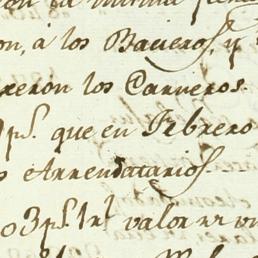 on, á los Bacieros, y
xeron los Carneros.
ps. que en Febrero
Arrendatarios
03ps. 1rl valor